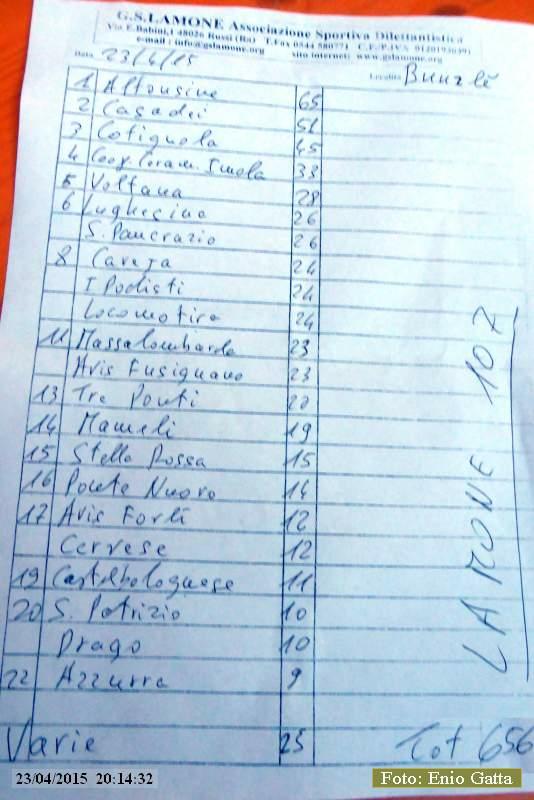 G.S.LAMONE Associazione Sportiva Dilettantistica
Via E.Babini,1 48026 Russi (Ra) T.Fax 0544 580771 C.F./P.IVA 01201930391
e-mail: info@gslamone.org sito internet: www.gslamone.org
Data 23/4/15 Località
1 Alfonsine 65
2 Casadei 51
3 Cotignola 45
4 Coop. Ceram. Imola 33
5 Voltana 28
6 Lughesina 26
S. Pancrazio 26
8 Caveja 24
I Podisti 24
Locomotiva 24
11 Massalombarda 23
Avis Fusignano 23
13 Tre Ponti 20
14 Mameli 19
15 Stella Rossa 15
16 Ponte Nuovo 14
17 Avis Forlì 12
Cervese 12
19 Castelbolognese 11
20 S. Patrizio 10
Drago 10
22 Azzurra 9
Varie 25 Tot 656
LAMONE 107
23/04/2015 20:14:32
Foto: Enio Gatta